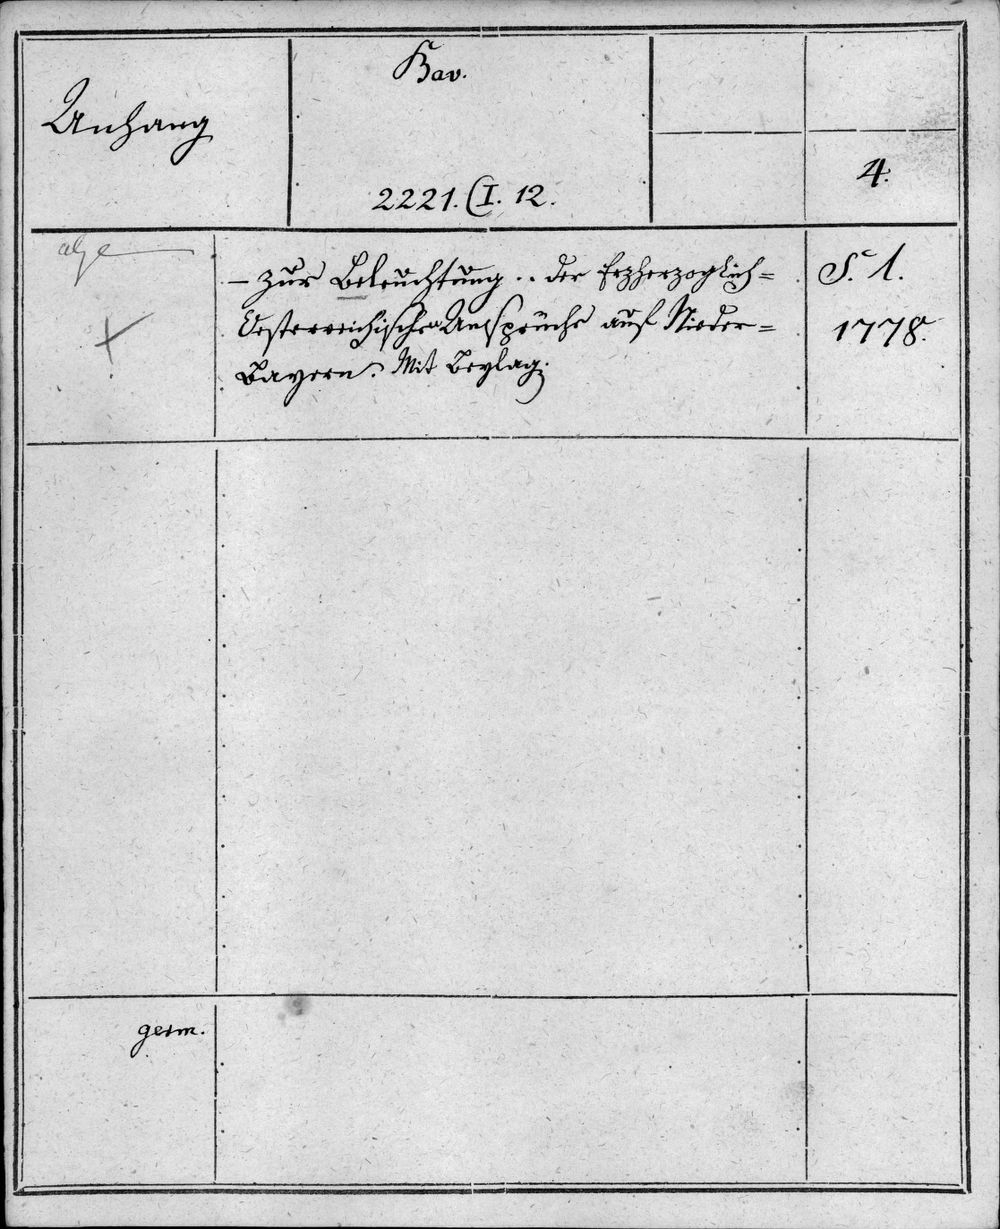 Anhang
Bav.
2221. (I. 12.
4.
– zur Beleuchtung .. der Erzherzoglich=
Oesterreichischen Ansprüche auf Nieder=
Bayern. Mit Beylag.
S. l.
1778.
germ.